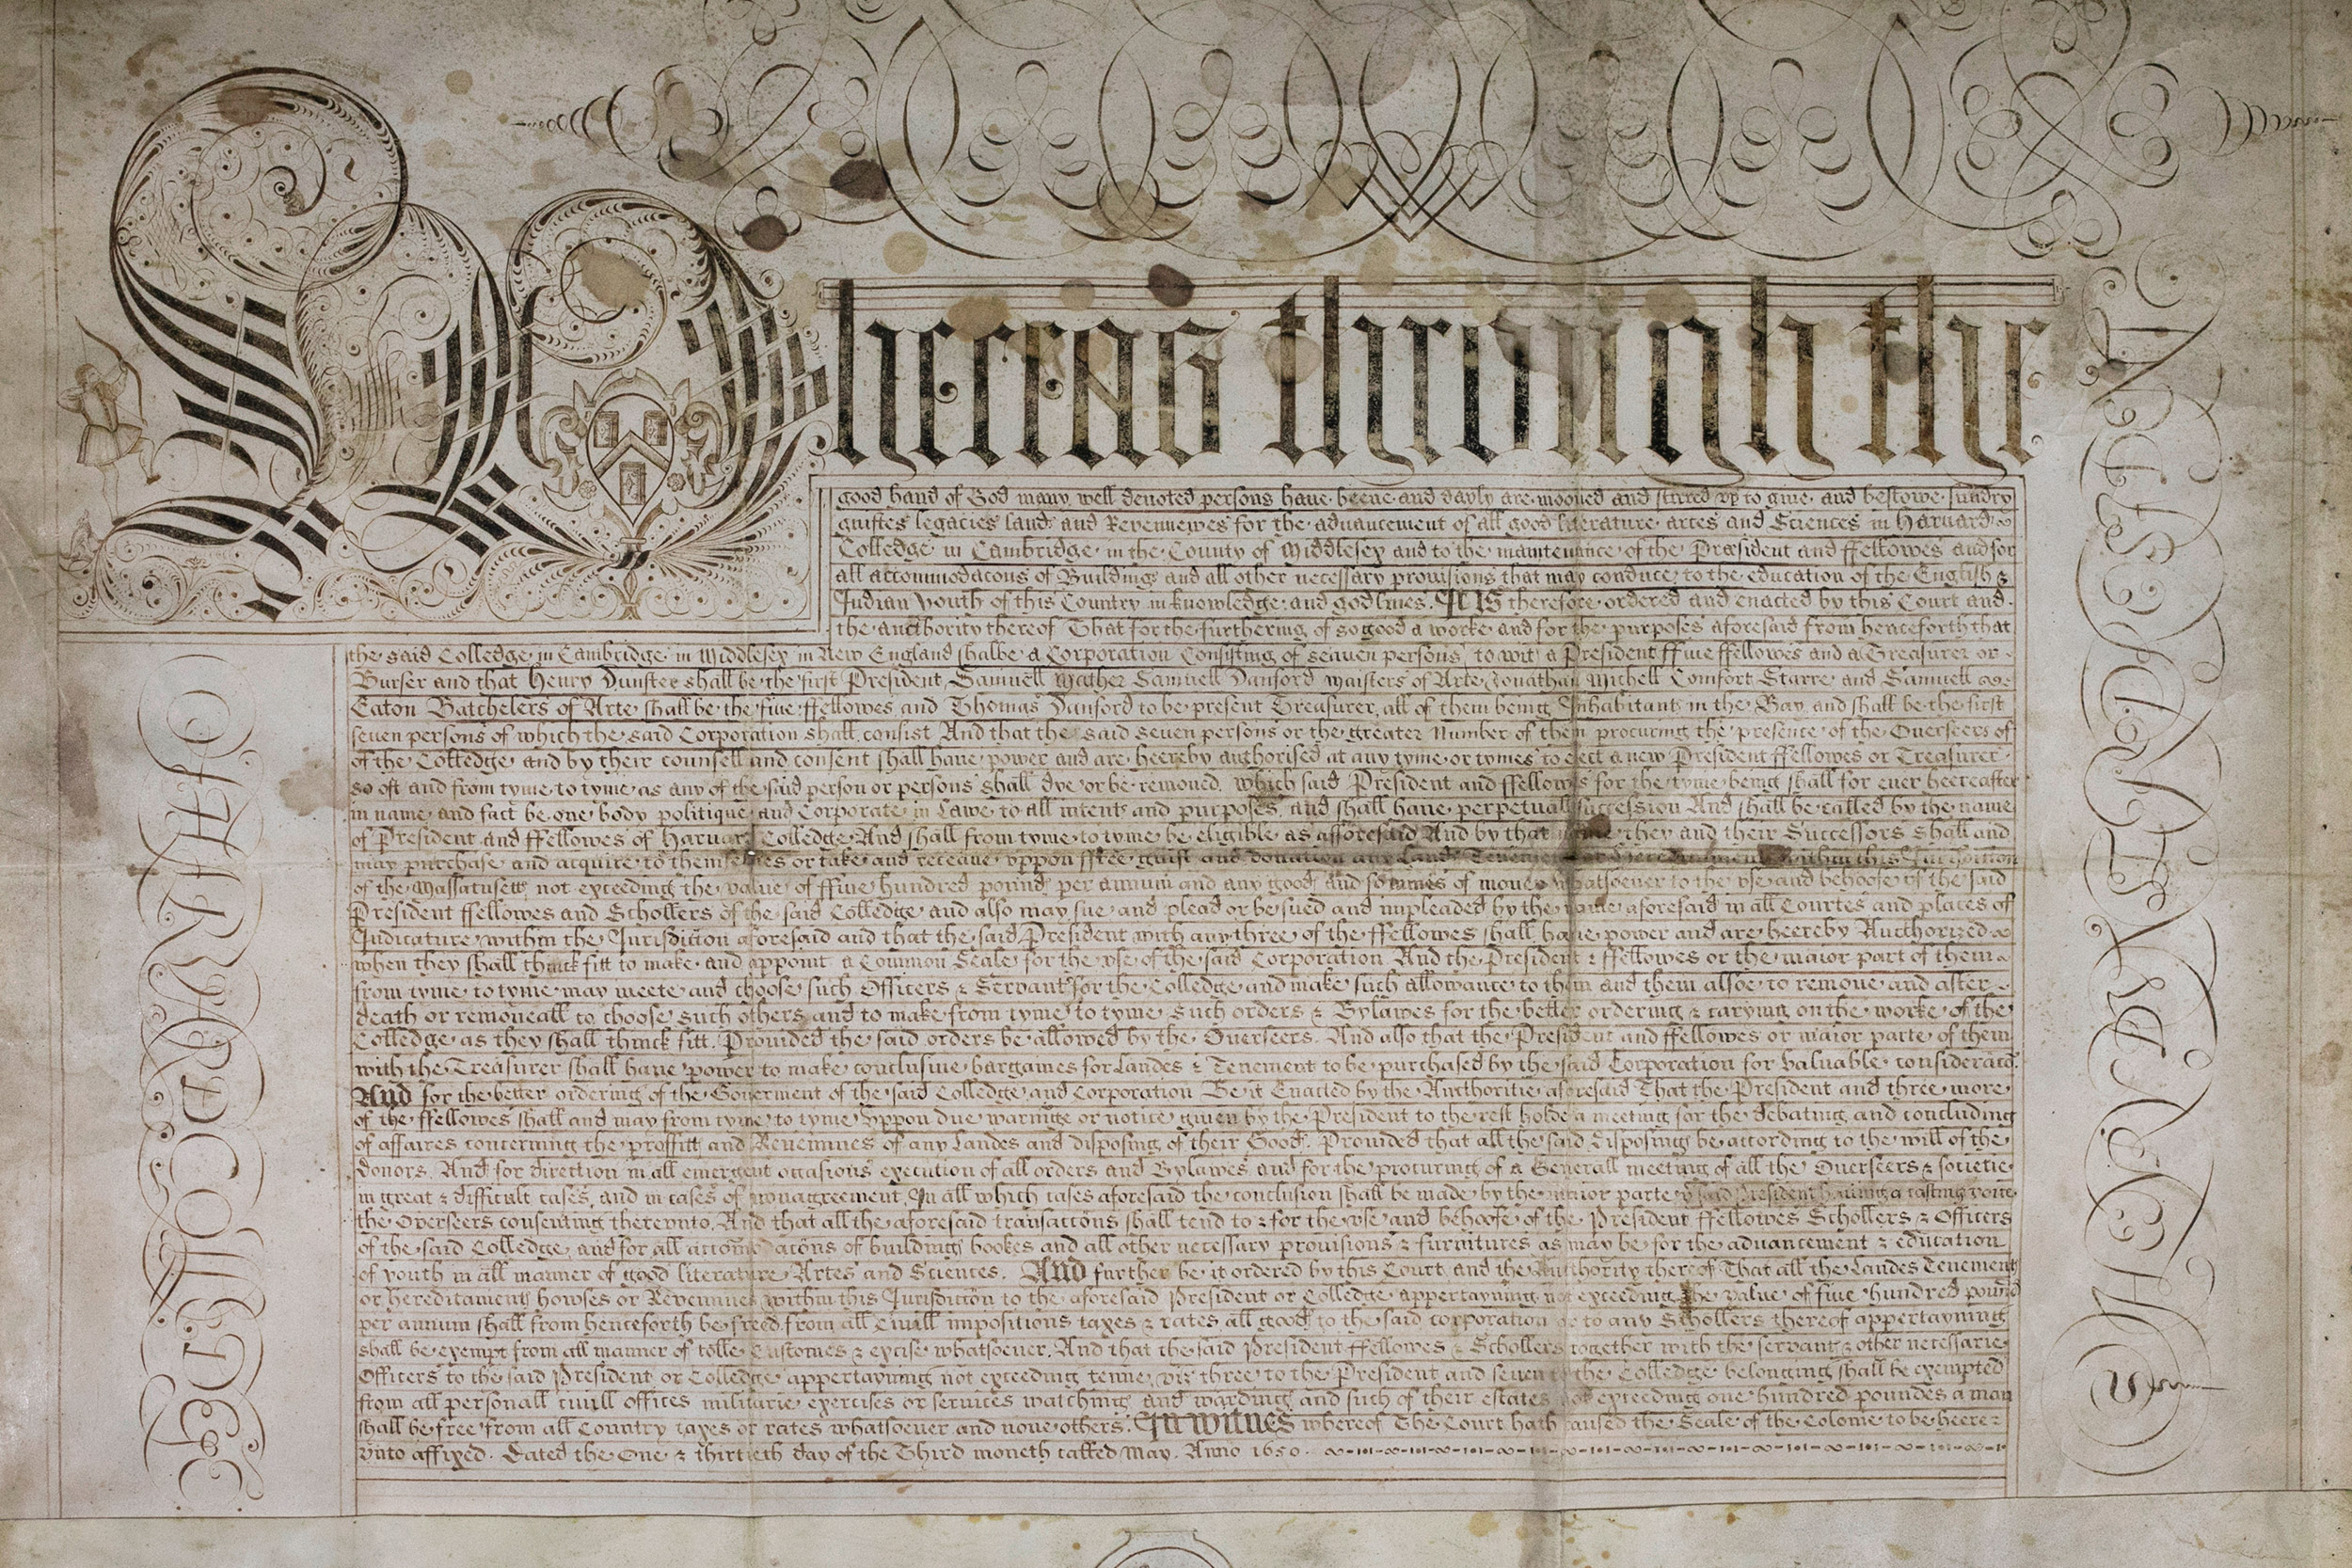 Whereas through the
good hand of God many well devoted persons haue beene and dayly are mooved and stirred vp to giue and bestowe sundry
guiftes legacies lands and Revennewes for the aduancement of all good literature artes and Sciences in Haruard
Colledge in Cambridge in the County of Middlesex and to the maintenance of the Præsident and ffellowes and for
all accommodacons of Buildings and all other necessary prouisions that may conduce to the education of the English &
Indian Youth of this Country in knowledge and godlines. It Is therefore ordered and enacted by this Court and
the aucthority thereof That for the furthering of so good a worke and for the purposes aforesaid from henceforth that
the said Colledge in Cambridge in Middlesex in New England shalbe a Corporation Consisting of seauen persons to wit a President ffiue ffellowes and a Treasurer or
Burser and that Henry Dunster shall be the first President Samuell Mather Samuell Danford Maisters of Arte Jonathan Michell Comfort Starre and Samuell
Eaton Batchelers of Arte shall be the fiue ffellowes and Thomas Danford to be present Treasurer, all of them being Inhabitants in the Bay, and shall be the first
seven persons of which the said Corporation shall consist And that the said seven persons or the greater Number of them procuring the presence of the Overseers of
of the Colledge and by their counsell and consent shall haue power and are heereby authorised at any tyme or tymes to elect a new President ffellowes or Treasurer
so oft and from tyme to tyme as any of the said person or persons shall dye or be remoued. Which said President and ffellowes for the tyme being shall for ever heereafter
in name and fact be one body politique and Corporate in Lawe to all intents and purposes, and shall haue perpetuall succession And shall be called by the name
of President and ffellowes of Haruard Colledge And shall from tyme to tyme be eligible as afforesaid And by that name they and their Successors shall and
may purchase and acquire to themselues or take and receaue vppon ffree guift and donation any Lands Tenements or Hereditaments within this Jurisdiction
of the Massatusetts not exceeding the value of ffiue hundred pounds per annum and any goods and sommes of money whatsoever to the vse and behoofe of the said
President ffellowes and Schollers of the said Colledge and also may sue and plead or be sued and impleaded by the name aforesaid in all Courtes and places of
Judicature within the Jurisdiction aforesaid and that the said President with any three of the ffellowes shall haue power and are heereby Aucthorized
when they shall thinck fitt to make and appoint a Common Seale for the vse of the said Corporation. And the President & ffellowes or the maior part of them
from tyme to tyme may meete and choose such Officers & Servants for the Colledge and make such allowance to them and them alsoe to remove and after
death or remoueall to choose such others and to make from tyme to tyme such orders & Bylawes for the better ordering & carying on the worke of the
Colledge as they shall thinck fitt. Prouided the said orders be allowed by the Overseers. And also that the President and ffellowes or maior parte of them
with the Treasurer shall haue power to make conclusiue bargaines for Landes & Tenements to be purchased by the said Corporation for valuable consideracon.
And for the better ordering of the Gouerment of the said Colledge and Corporation Be it Enacted by the Authoritie aforesaid That the President and three more
of the ffellowes shall and may from tyme to tyme vppon due warninge or notice giuen by the President to the rest holde a meeting for the debating and concluding
of affaires concerning the proffitts and Reuennues of any Landes and disposing of their Goods. Prouided that all the said disposing be according to the will of the
donors. And for direction in all emergent occasions execution of all orders and Bylawes and for the procuring of a Generall meeting of all the Overseers & societie
in great & difficult cases, and in cases of nonagreement, In all which cases aforesaid the conclusion shall be made by the maior parte, ye said President hauing a casting voice,
the Overseers consenting therevnto, And that all the aforesaid transactions shall tend to & for the vse and behoofe of the President ffellowes Schollers & Officers
of the said Colledge, and for all accommodacons of buildings bookes and all other necessary prouisions & furnitures as may be for the aduancement & education
of youth in all manner of good literature Artes and Sciences. And further be it ordered by this Court and the Authority thereof That all the Landes Tenements
or hereditaments howses or Revennues within this Jurisdiction to the aforesaid President or Colledge appertayning not exceeding the value of fiue hundred pounds
per annum shall from henceforth be freed from all Ciuill impositions taxes & rates all goods to the said corporation or to any Schollers thereof appertayning
shall be exempt from all manner of tolle Customes & excise whatsoever. And that the said President ffellowes & Schollers together with the servants & other necessarie
Officers to the said President or Colledge appertayning not exceeding tenne, viz three to the President and seuen to the Colledge belonging shall be exempted
from all personall ciuill offices militarie exercises or services watchings and wardings and such of their estates not exceeding one hundred poundes a man
shall be free from all Country taxes or rates whatsoever and none others. In witnes whereof The Court hath caused the Seale of the Colonie to be heere=
vnto affixed. Dated the One & thirtieth day of the Third moneth called May. Anno 1650.